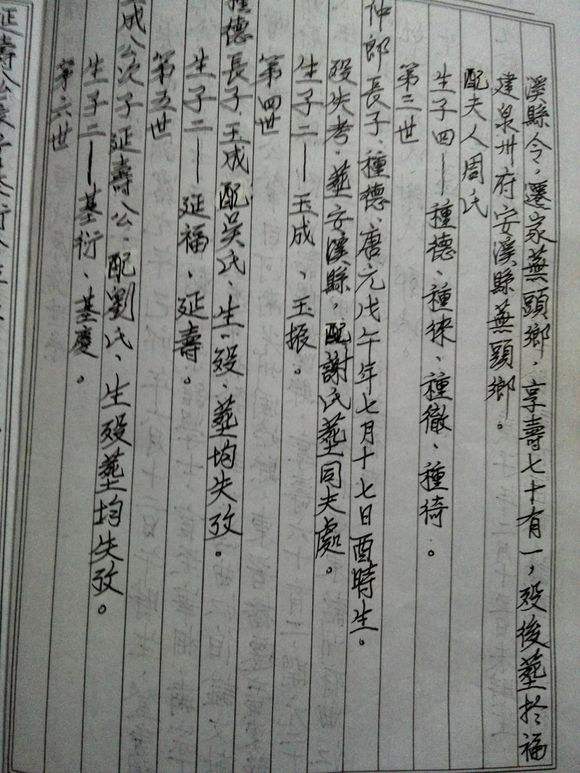 溪縣令，遷家蕪頭鄉，享壽七十有一，歿後塟於福
建泉州府安溪縣蕪頭鄉。
配夫人周氏
生子四——種德、種徠、種徹、種徛。
第三世
仲郎長子，種德、唐、元戊午年七月十七日酉時生。
歿失考，塟安溪縣，配謝氏塟同夫處。
生子二——玉成、玉振。
第四世
種德長子玉成配吳氏、生、歿、塟均失攷。
生子二——延福、延壽。
第五世
玉成公次子延壽公，配劉氏、生歿塟均失攷。
生子二——基衍、基慶。
第六世